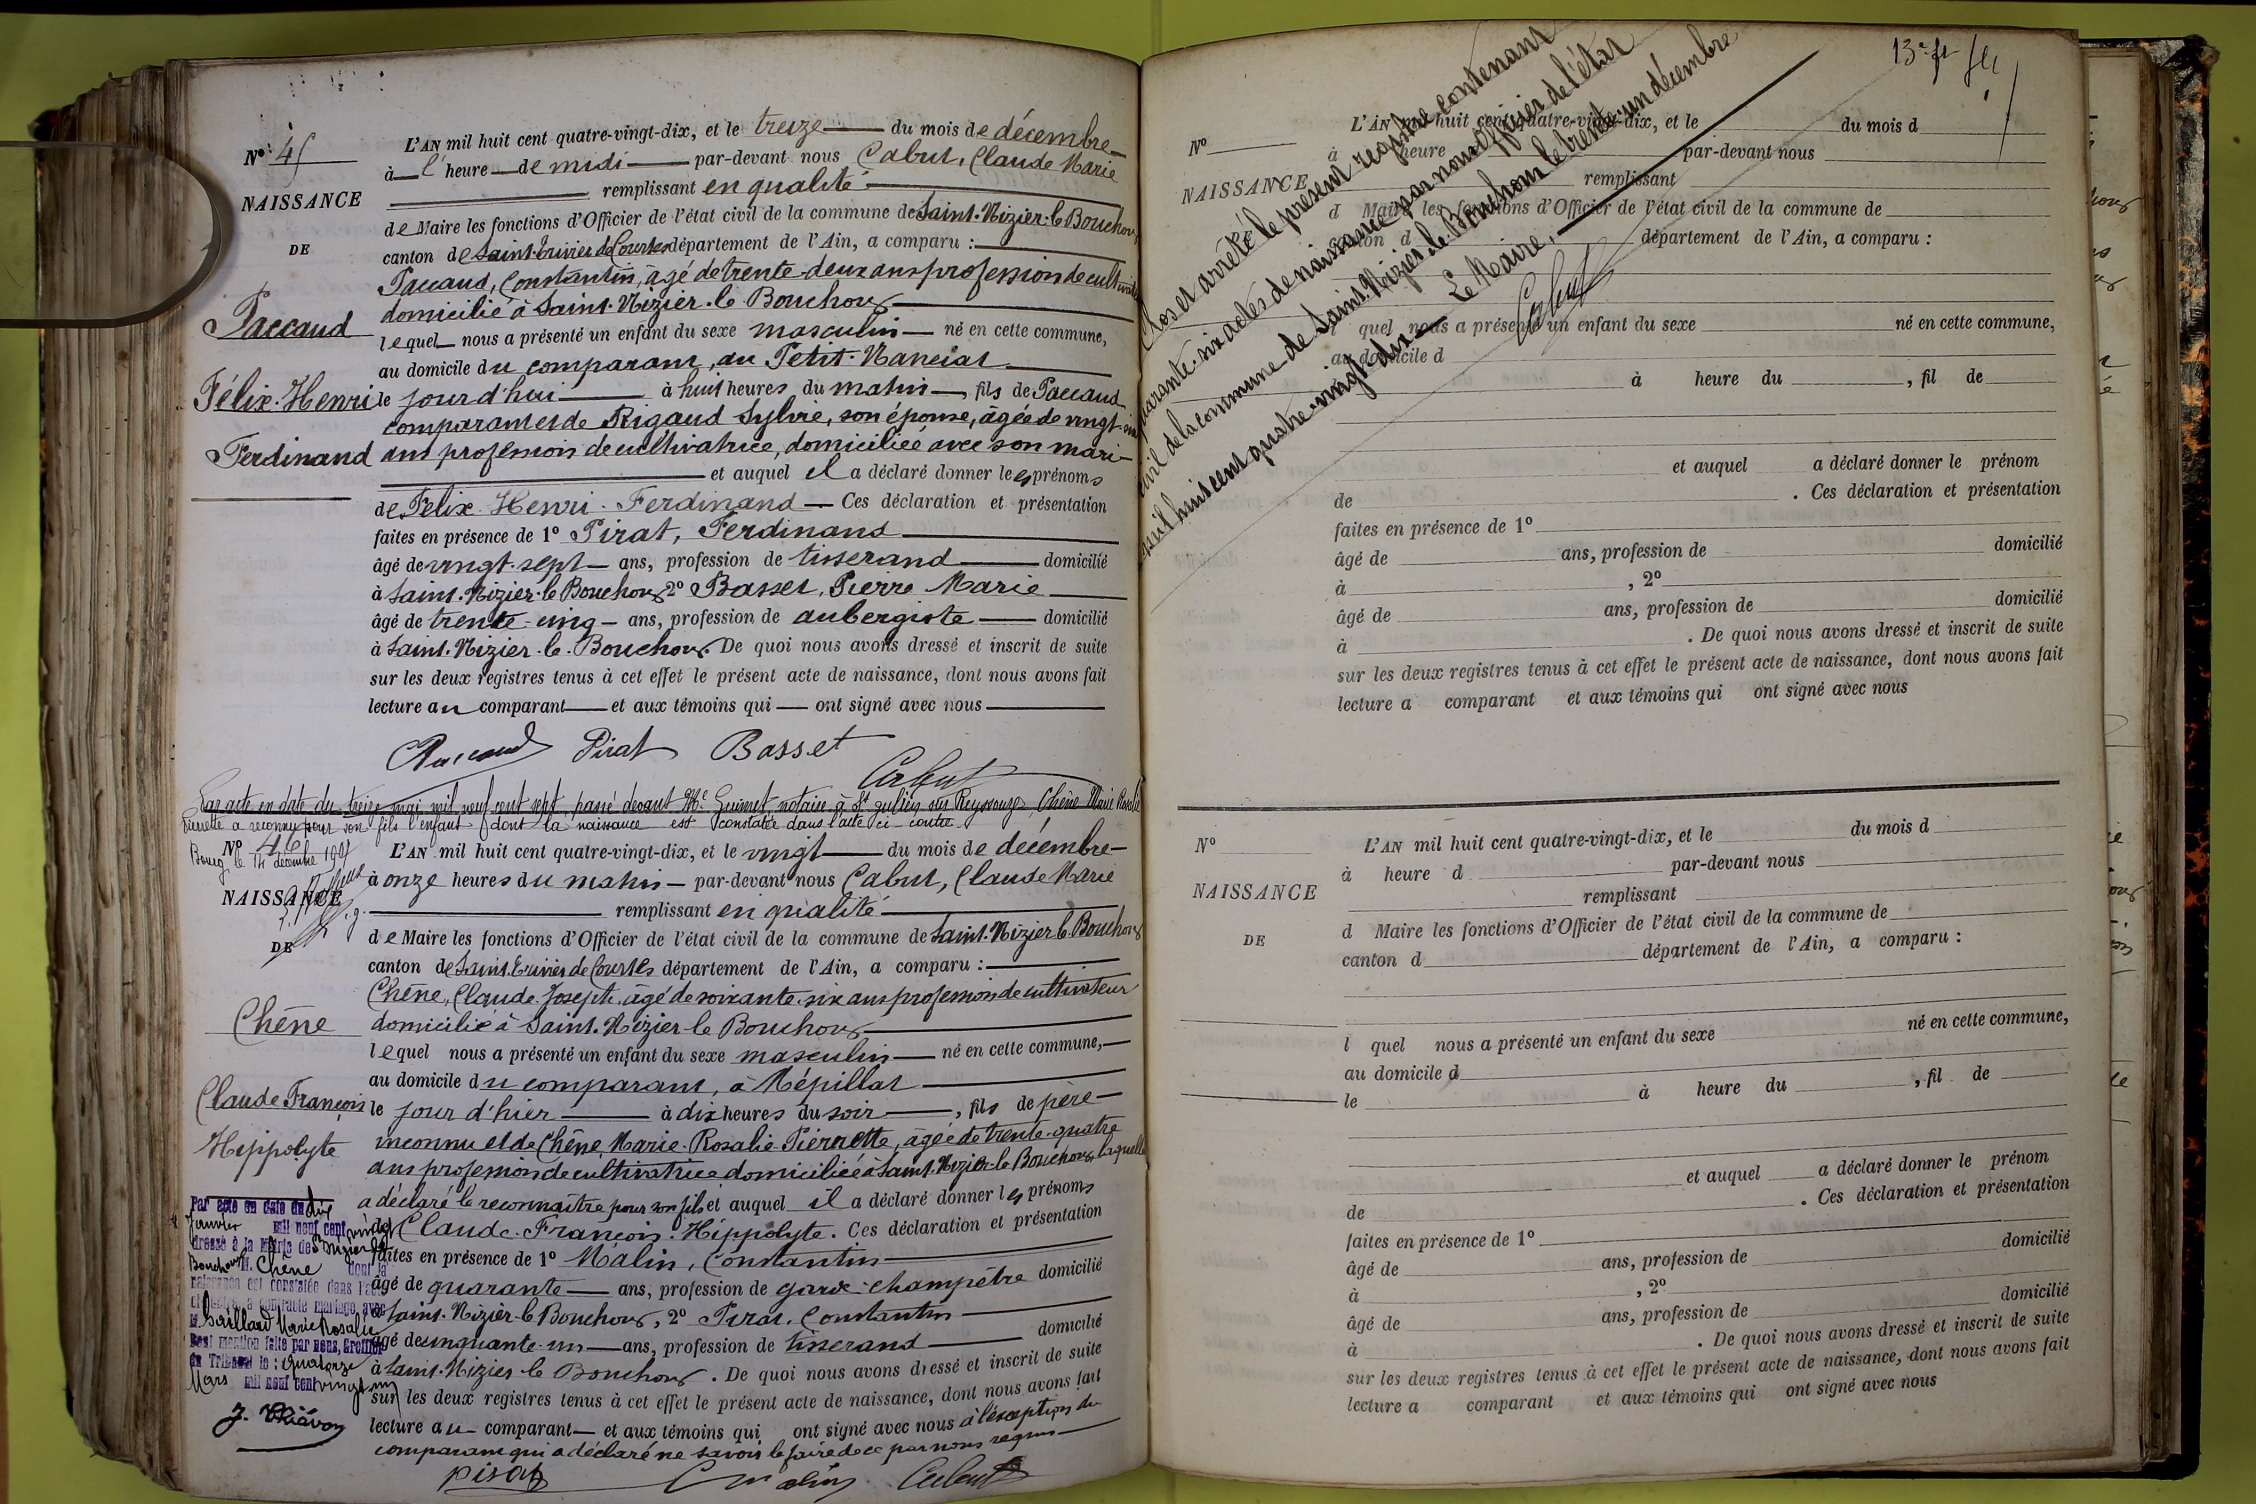 Nº 45
NAISSANCE
DE
Paccaud
Félix-Henri
Ferdinand
L'AN mil huit cent quatre-vingt-dix, et le treize du mois de décembre
à l'heure de midi par-devant nous Cabut, Claude Marie
remplissant en qualité
de Maire les fonctions d'Officier de l'état civil de la commune de Saint-Nizier-le Bouchoux
canton de Saint-Trivier de Courtes département de l'Ain, a comparu :
Paccaud, Constantin, agé de trente-deux ans profession de cultivateur
domicilié à Saint-Nizier-le Bouchoux
lequel nous a présenté un enfant du sexe masculin né en cette commune,
au domicile du comparant, au Petit-Manciat
le jour d'hui à huit heures du matin, fils de Paccaud
comparant et de Rigaud Sylvie, son épouse, âgée de vingt-six
ans profession de cultivatrice, domiciliée avec son mari
et auquel il a déclaré donner les prénoms
de Félix-Henri-Ferdinand Ces déclaration et présentation
faites en présence de 1º Pirat, Ferdinand
âgé de vingt-sept ans, profession de tisserand domicilié
à Saint-Nizier-le Bouchoux 2º Basset, Pierre Marie
âgé de trente-cinq ans, profession de aubergiste domicilié
à Saint-Nizier-le-Bouchoux. De quoi nous avons dressé et inscrit de suite
sur les deux registres tenus à cet effet le présent acte de naissance, dont nous avons fait
lecture au comparant et aux témoins qui ont signé avec nous
Paccaud Pirat Basset
Cabut
Par acte en date du treize mai mil neuf cent sept passé devant Me Guimet notaire à St Julien sur Reyssouze, Chêne Marie Rosalie
Pierrette a reconnu pour son fils l'enfant dont la naissance est constatée dans l'acte ci-contre
Bourg le 14 décembre 1907
Nº 46
NAISSANCE
DE
Chêne
Claude François
Hippolyte
L'AN mil huit cent quatre-vingt-dix, et le vingt du mois de décembre
à onze heures du matin par-devant nous Cabut, Claude Marie
remplissant en qualité
de Maire les fonctions d'Officier de l'état civil de la commune de Saint-Nizier-le-Bouchoux
canton de Saint-Trivier de Courtes département de l'Ain, a comparu :
Chêne, Claude Joseph, âgé de soixante-six ans profession de cultivateur
domicilié à Saint-Nizier-le Bouchoux
lequel nous a présenté un enfant du sexe masculin né en cette commune,
au domicile du comparant, à Mépillat
le jour d'hier à dix heures du soir, fils de père
inconnu et de Chêne, Marie-Rosalie-Pierrette, âgée de trente-quatre
ans profession de cultivatrice domiciliée à Saint-Nizier-le Bouchoux laquelle
a déclaré le reconnaître pour son fils et auquel il a déclaré donner les prénoms
de Claude-François-Hippolyte. Ces déclaration et présentation
faites en présence de 1º Malin, Constantin
âgé de quarante ans, profession de garde-champêtre domicilié
à Saint-Nizier-le Bouchoux, 2º Pirat, Constantin
âgé de cinquante-un ans, profession de tisserand domicilié
à Saint-Nizier le Bouchoux. De quoi nous avons dressé et inscrit de suite
sur les deux registres tenus à cet effet le présent acte de naissance, dont nous avons fait
lecture au comparant et aux témoins qui ont signé avec nous à l'exception du
comparant qui a déclaré ne savoir le faire de ce par nous requis
Pirat Malin Cabut
Par acte en date du dix
Janvier mil neuf cent vingt
dressé à la Mairie de St Nizier le
Bouchoux M. Chêne dont la
naissance est constatée dans l'acte
ci-contre a contracté mariage avec
M. Gaillard Marie Rosalie
Dont mention faite par nous, Greffier
du Tribunal le : quatorze
Mars mil neuf cent vingt un
J. Thiévon
13e ft
Clos et arrêté le présent registre contenant
quarante-six actes de naissance par nous Officier de l'état
civil de la commune de Saint-Nizier-le-Bouchoux le trente-un décembre
mil huit cent quatre-vingt-dix
Le Maire,
Cabut
Nº
NAISSANCE
DE
L'AN mil huit cent quatre-vingt-dix, et le du mois d
à heure par-devant nous
remplissant
d Maire les fonctions d'Officier de l'état civil de la commune de
canton d département de l'Ain, a comparu :
l quel nous a présenté un enfant du sexe né en cette commune,
au domicile d
à heure du , fil de
et auquel a déclaré donner le prénom
de . Ces déclaration et présentation
faites en présence de 1º
âgé de ans, profession de domicilié
à , 2º
âgé de ans, profession de domicilié
à . De quoi nous avons dressé et inscrit de suite
sur les deux registres tenus à cet effet le présent acte de naissance, dont nous avons fait
lecture a comparant et aux témoins qui ont signé avec nous
Nº
NAISSANCE
DE
L'AN mil huit cent quatre-vingt-dix, et le du mois d
à heure d par-devant nous
remplissant
d Maire les fonctions d'Officier de l'état civil de la commune de
canton d département de l'Ain, a comparu :
l quel nous a présenté un enfant du sexe né en cette commune,
au domicile d
le à heure du , fil de
et auquel a déclaré donner le prénom
de . Ces déclaration et présentation
faites en présence de 1º
âgé de ans, profession de domicilié
à , 2º
âgé de ans, profession de domicilié
à . De quoi nous avons dressé et inscrit de suite
sur les deux registres tenus à cet effet le présent acte de naissance, dont nous avons fait
lecture a comparant et aux témoins qui ont signé avec nous